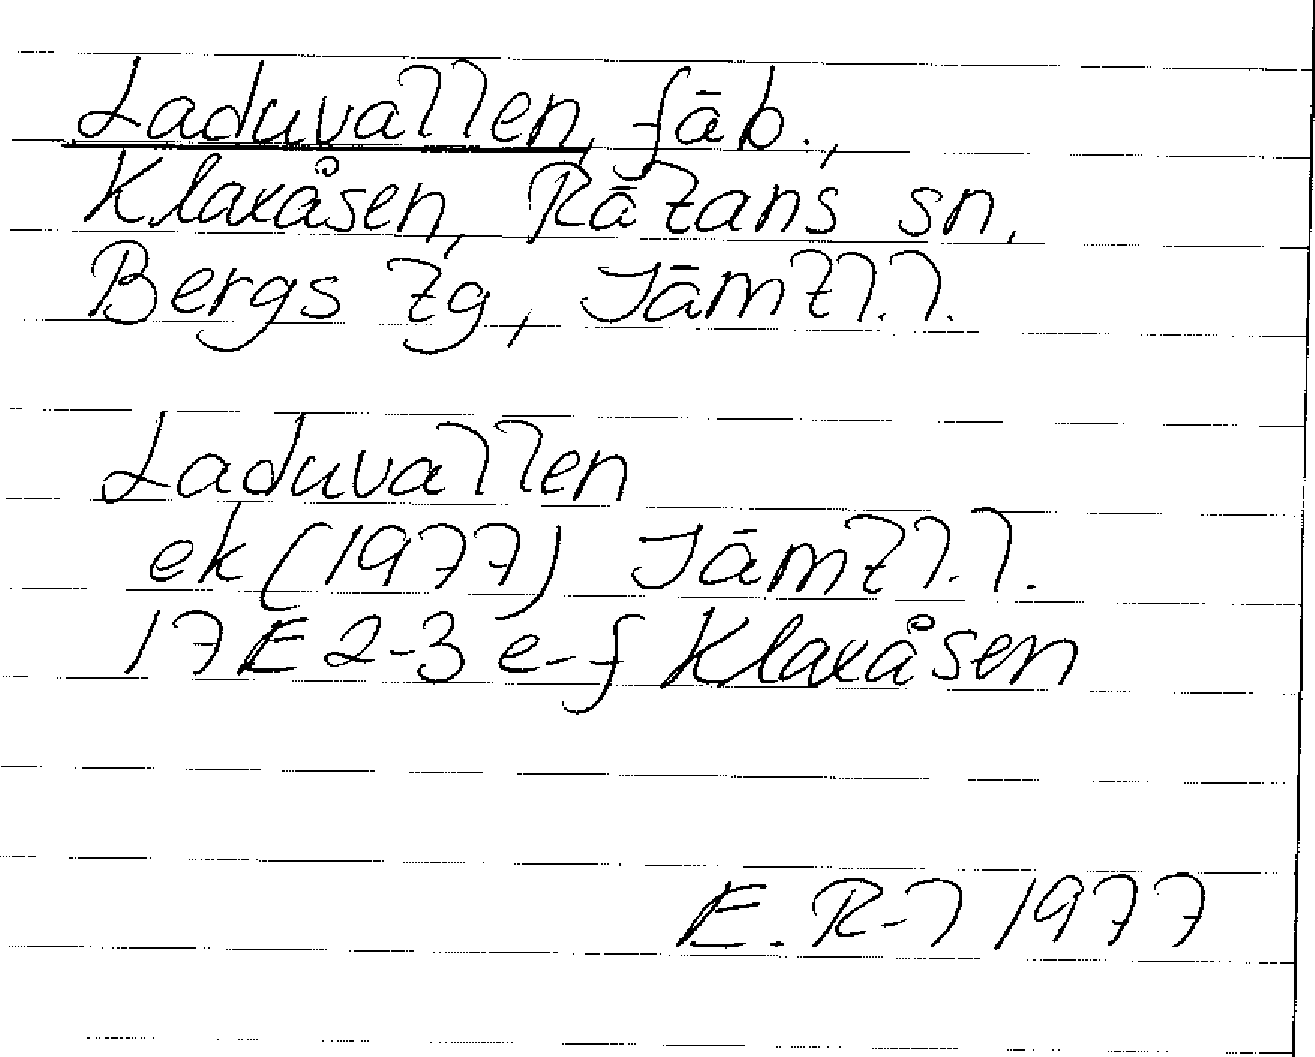 Laduvallen, fäb.,
Klaxåsen, Rätans sn,
Bergs tg, Jämtl.l.
Laduvallen
ek (1977) Jämtl.l.
17E 2-3 e-f Klaxåsen
E. R-l 1977